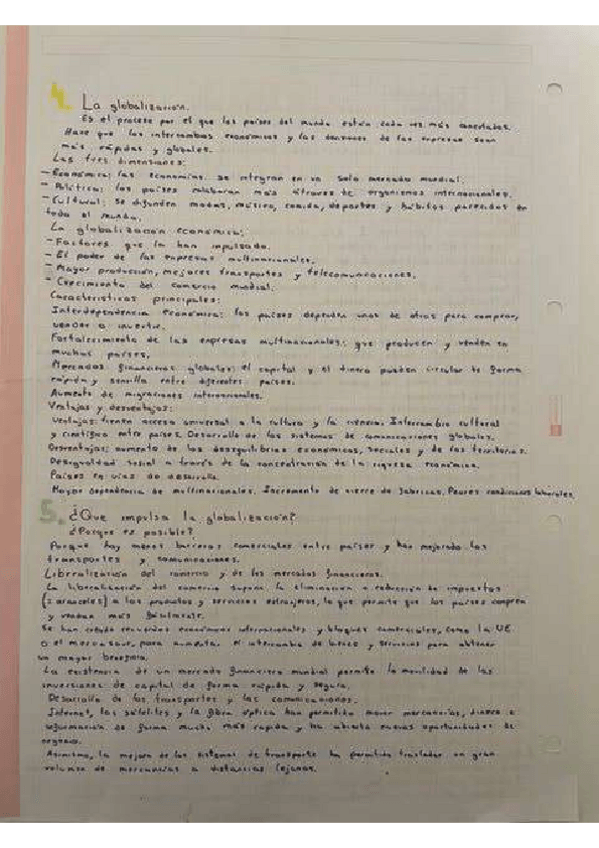 4. La globalización.
Es el proceso por el que los países del mundo están cada vez más conectados.
Hace que los intercambios económicos y las decisiones de las empresas sean
más rápidas y globales.
Las tres dimensiones:
- Económica: las economías se integran en un solo mercado mundial.
- Política: los países colaboran más através de organismos internacionales.
- Cultural: se difunden modas, música, comida, deportes y hábitos parecidos en
todo el mundo.
La globalización económica:
- Factores que la han impulsado.
- El poder de las empresas multinacionales.
- Mayor producción, mejores transportes y telecomunicaciones.
- Crecimiento del comercio mundial.
Características principales:
Interdependencia económica: los países dependen unos de otros para comprar,
vender o invertir.
Fortalecimiento de las empresas multinacionales: que producen y venden en
muchos países.
Mercados financieros globales: el capital y el dinero pueden circular de forma
rápida y sencilla entre diferentes países.
Aumento de migraciones internacionales.
Ventajas y desventajas:
Ventajas: tienen acceso universal a la cultura y la ciencia. Intercambio cultural
y científico entre países. Desarrollo de los sistemas de comunicaciones globales.
Desventajas: aumento de los desequilibrios económicos, sociales y de los territorios.
Desigualdad social a través de la concentración de la riqueza económica.
Países en vías de desarrollo.
Mayor dependencia de multinacionales. Incremento de cierre de fabricas. Peores condiciones laborales.
5. ¿Que impulsa la globalización?
¿Porque es posible?
Porque hay menos barreras comerciales entre países y han mejorado los
transportes y comunicaciones.
Liberalización del comercio y de los mercados financieros.
La liberalización del comercio supone la eliminación o reducción de impuestos
(aranceles) a los productos y servicios extranjeros, lo que permite que los países compren
y vendan más fácilmente.
Se han creado económicos internacionales y bloques comerciales, como la UE
o el mercosur, para aumentar el intercambio de bienes y servicios para obtener
un mayor beneficio.
La existencia de un mercado financiero mundial permite la movilidad de las
inversiones de capital de forma rápida y segura.
Desarrollo de los transportes y las comunicaciones.
Internet, los satélites y la fibra óptica han permitido mover mercancías, dinero e
información de forma mucho más rapida y ha abierto nuevas oportunidades de
negocio.
Asimismo, la mejora de los sistemas de transporte ha permitido trasladar un gran
volumen de mercancías a distancias lejanas.